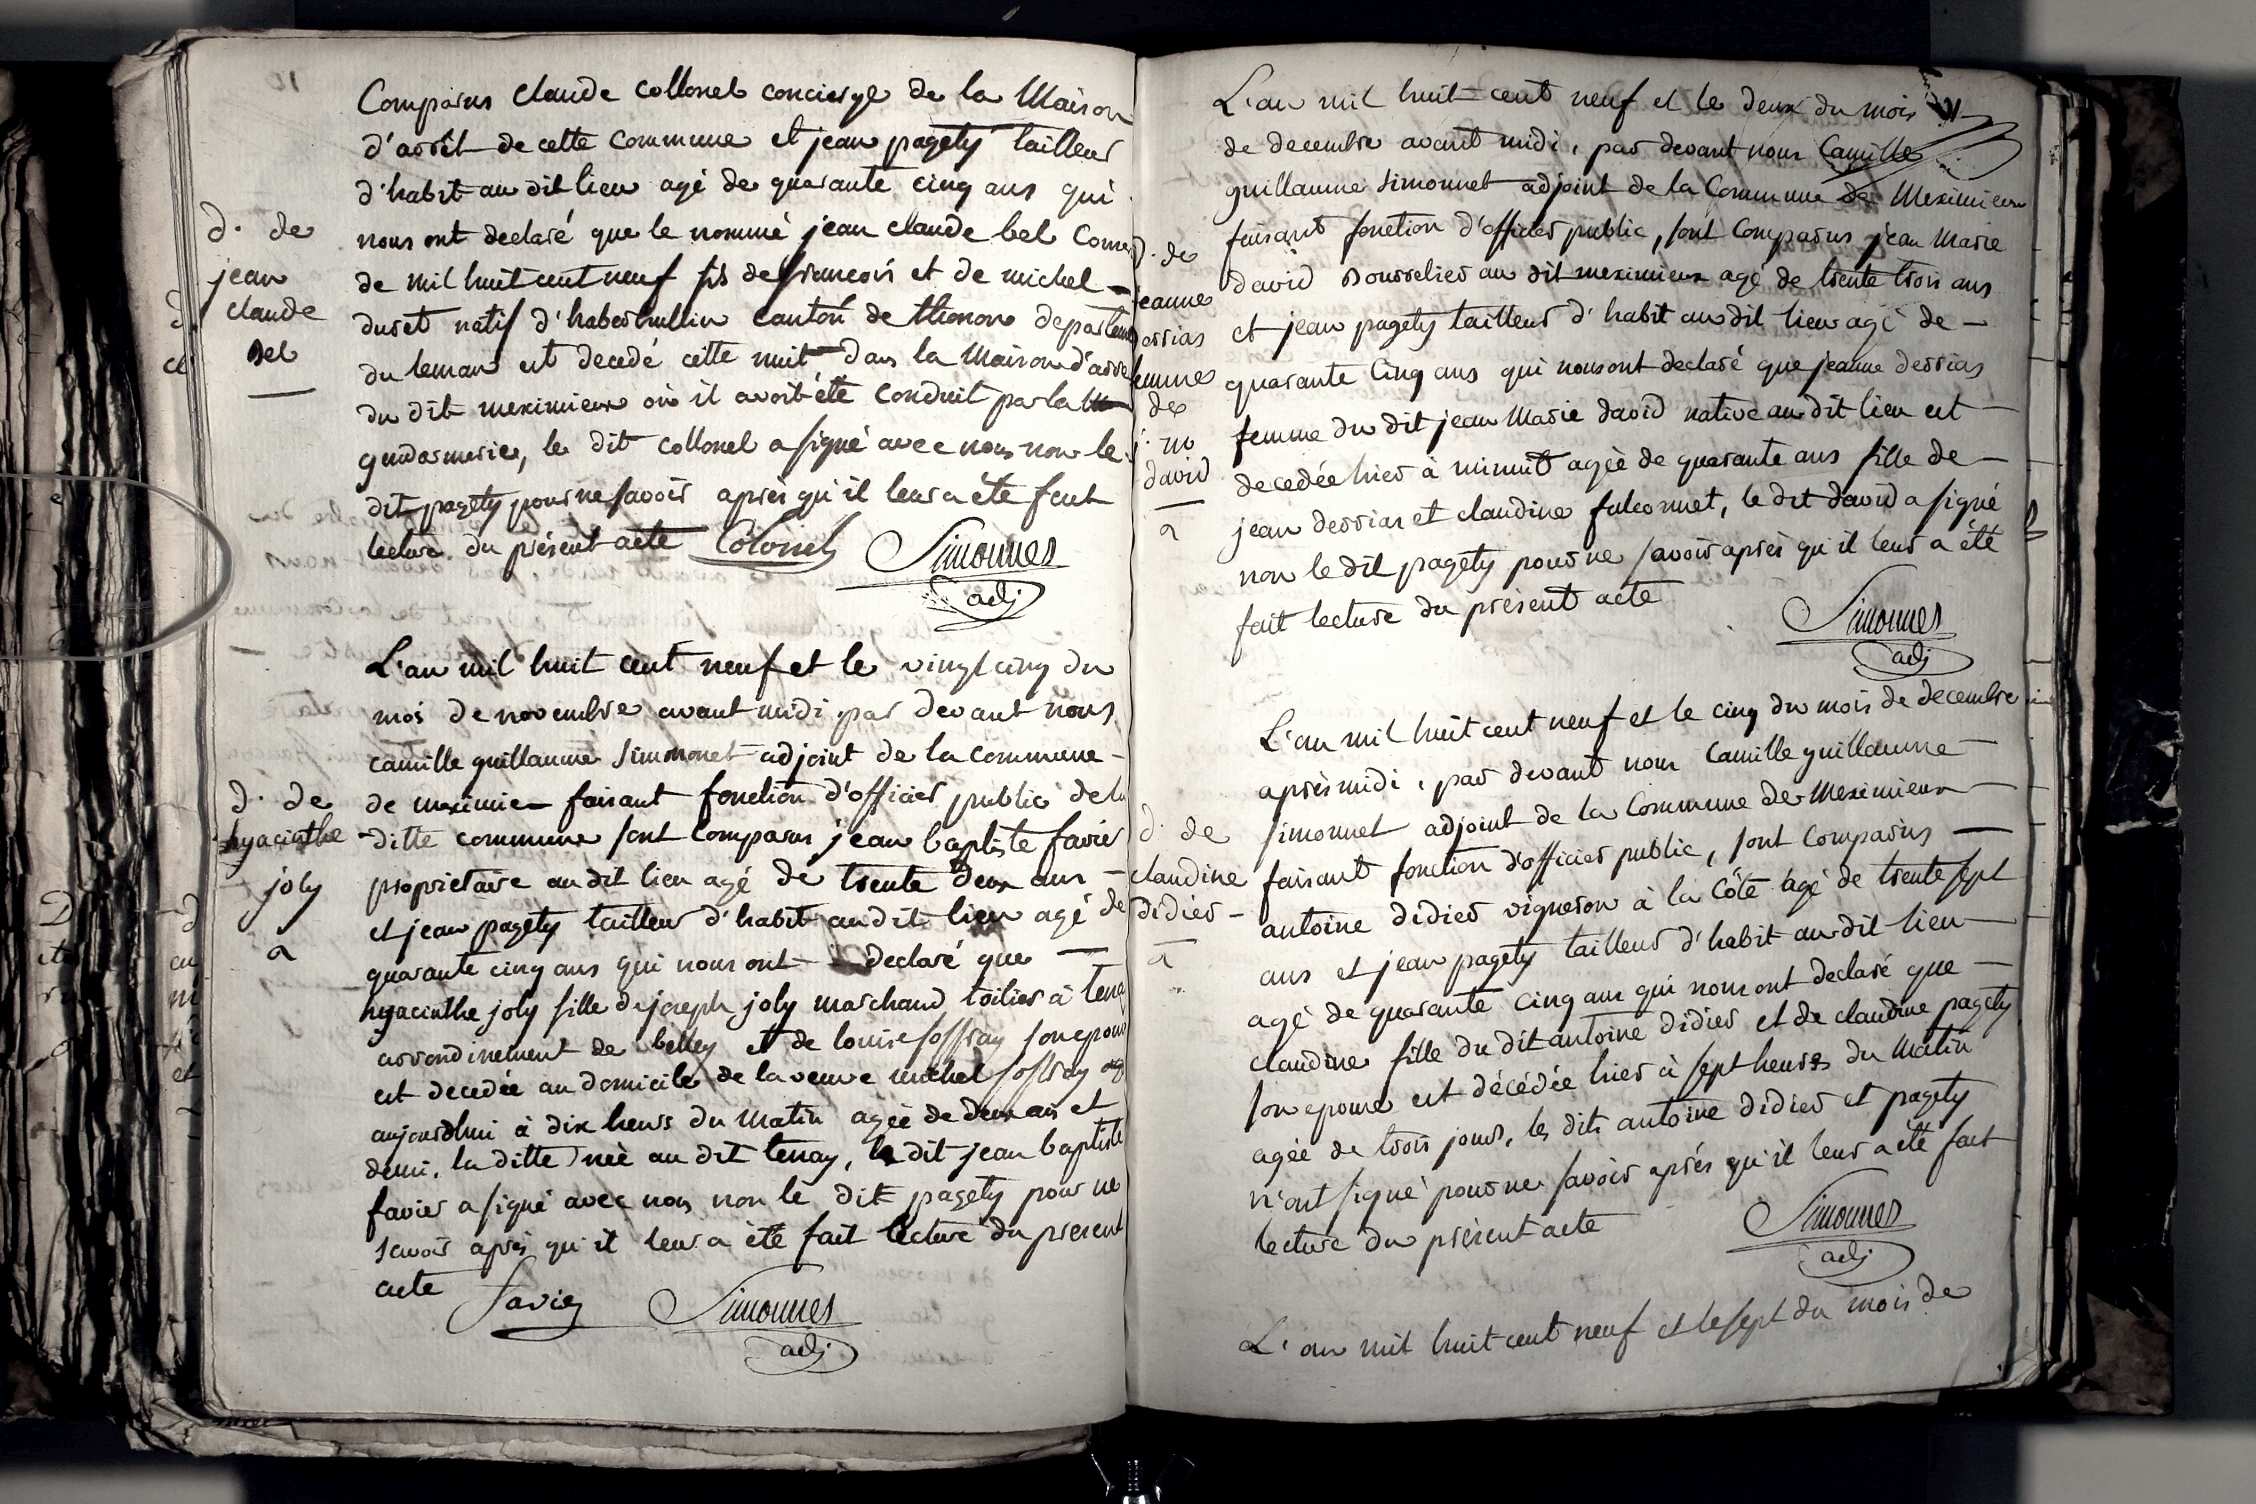 Comparus claude collonel concierge de la Maison
d'arrêt de cette commune et jean pagety tailleur
d'habit au dit lieu agé de quarante cinq ans qui
nous ont declaré que le nommé jean claude bel
de mil huit cent neuf fils de francois et de michel
duret natif d' canton de thonon departem
du leman est decedé cette nuit dans la Maison d'arre
du dit meximieux où il avoit été conduit par la
gendarmerie, le dit collonel a signé avec nous non le
dit pagety pour ne savoir après qu'il leur a été fait
lecture du présent acte Colonel Simonnet
adj
d. de
jean
claude
bel
L'an mil huit cent neuf et le vingt cinq du
mois de novembre avant midi par devant nous
camille guillaume Simmonet adjoint de la commune
de meximie faisant fonction d'officier public de la
ditte commune sont comparus jean baptiste favier
proprietaire au dit lieu agé de trente deux ans
et jean pagety tailleur d'habit au dit lieu agé de
quarante cinq ans qui nous ont declaré que
hyacinthe joly fille de joseph joly marchand toilier à tena
arrondinement de belley et de louise soffray son epous
est decedée au domicile de la veuve michel soffray
aujourdhui à dix heurs du matin agée de deux ans et
demi, la ditte née au dit tenay, le dit jean baptiste
favier a signé avec nous non le dit pagety pour ne
scavoir après qu'il leur a été fait lecture du present
acte Favier Simonnet
adj
d. de
hyacinthe
joly
a
L'an mil huit cent neuf et le deux du mois
de decembre avant midi, par devant nous Camille
guillaume simonnet adjoint de la Commune de Meximieux
faisant fonction d'officier public, sont Comparus jean Marie
david Bourrelier au dit meximieux agé de trente trois ans
et jean pagety tailleur d'habit au dit lieu agé de
quarante Cinq ans qui nous ont declaré que jeanne derrias
femme du dit jean Marie david native au dit lieu est
decedée hier à minuit agée de quarante ans fille de
jean derrias et claudine falconnet, le dit david a signé
non le dit pagety pour ne savoir après qu'il leur a été
fait lecture du présent acte
Simonnet
adj
d. de
jeanne
derrias
femme
de
j. m
david
a
L'an mil huit cent neuf et le cinq du mois de decembre
après midi, par devant nous Camille guillaume
simonnet adjoint de la Commune de Meximieux
faisant fonction d'officier public, sont Comparus
antoine didier vigneron à la Côte agé de trente sept
ans et jean pagety tailleur d'habit au dit lieu
agé de quarante cinq ans qui nous ont declaré que
claudine fille du dit antoine didier et de claudine pagety
son epouse est décédée hier à sept heures du Matin
agée de trois jours, les dits antoine didier et pagety
n'ont signé pour ne savoir après qu'il leur a été fait
lecture du présent acte
Simonnet
adj
d. de
claudine
didier
a
L'an mil huit cent neuf et le sept du mois de